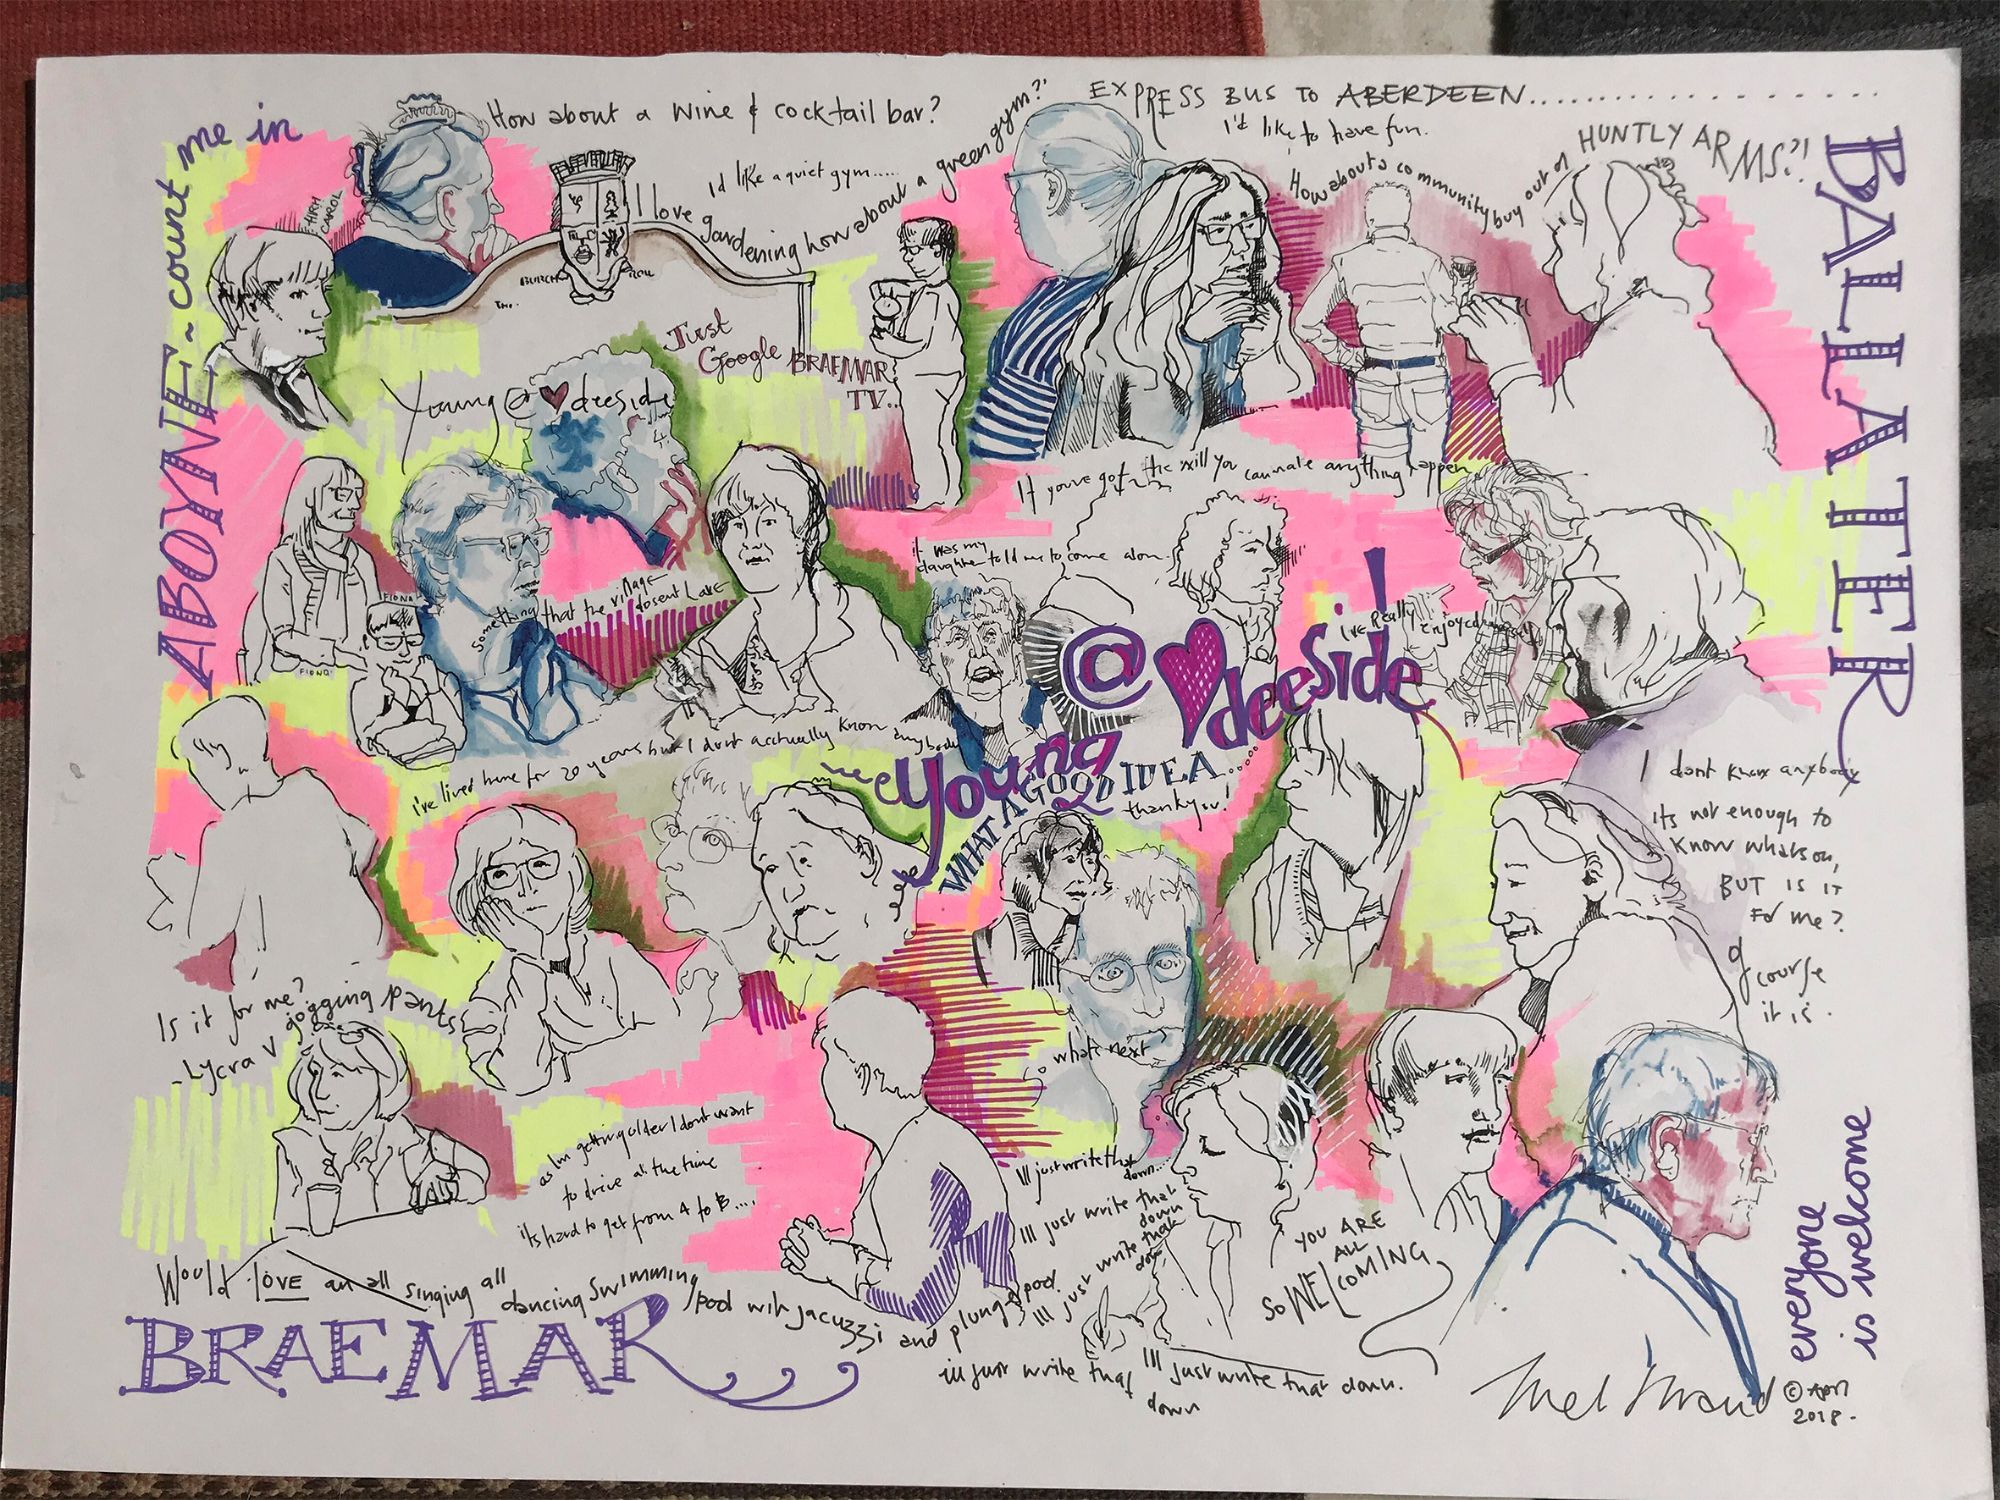 How about a wine & cocktail bar?
EXPRESS BUS TO ABERDEEN..................
I'd like to have fun.
HUNTLY ARMS?!
How about a community buy out of
I'd like a quiet gym.....
I love gardening how about a green gym?!
ABOYNE ~ count me in
BALLATER
CAROL
BURGH
Just
Google BRAEMAR
TV...
Young @ ♥ deeside
If youve got the will you can make anything happen
it was my
daughter told me to come along
FIONA
FIONA
something that the village dosent have
I've Really enjoyed
@ ♥ deeside!
Young
WHAT A GOOD IDEA.....
thankyou!
i've lived here for 20 years but I dont acctually know anybody
I dont know anybody
its not enough to
know whats on,
BUT is it
FOR me?
of
course
it is.
Is it for me?
-Lycra V jogging pants
whats next
as Im getting older I dont want
to drive all the time
its hard to get from A to B.....
I'll just write that
down.....
I'll just write that
down
I'll just write that
down
I'll just write that down.
ill just write that
down
YOU ARE
ALL
SO WELCOMING
Would LOVE an all singing all dancing swimming pool with jacuzzi and plunge pool.
BRAEMAR
everyone
is welcome
© April
2018.